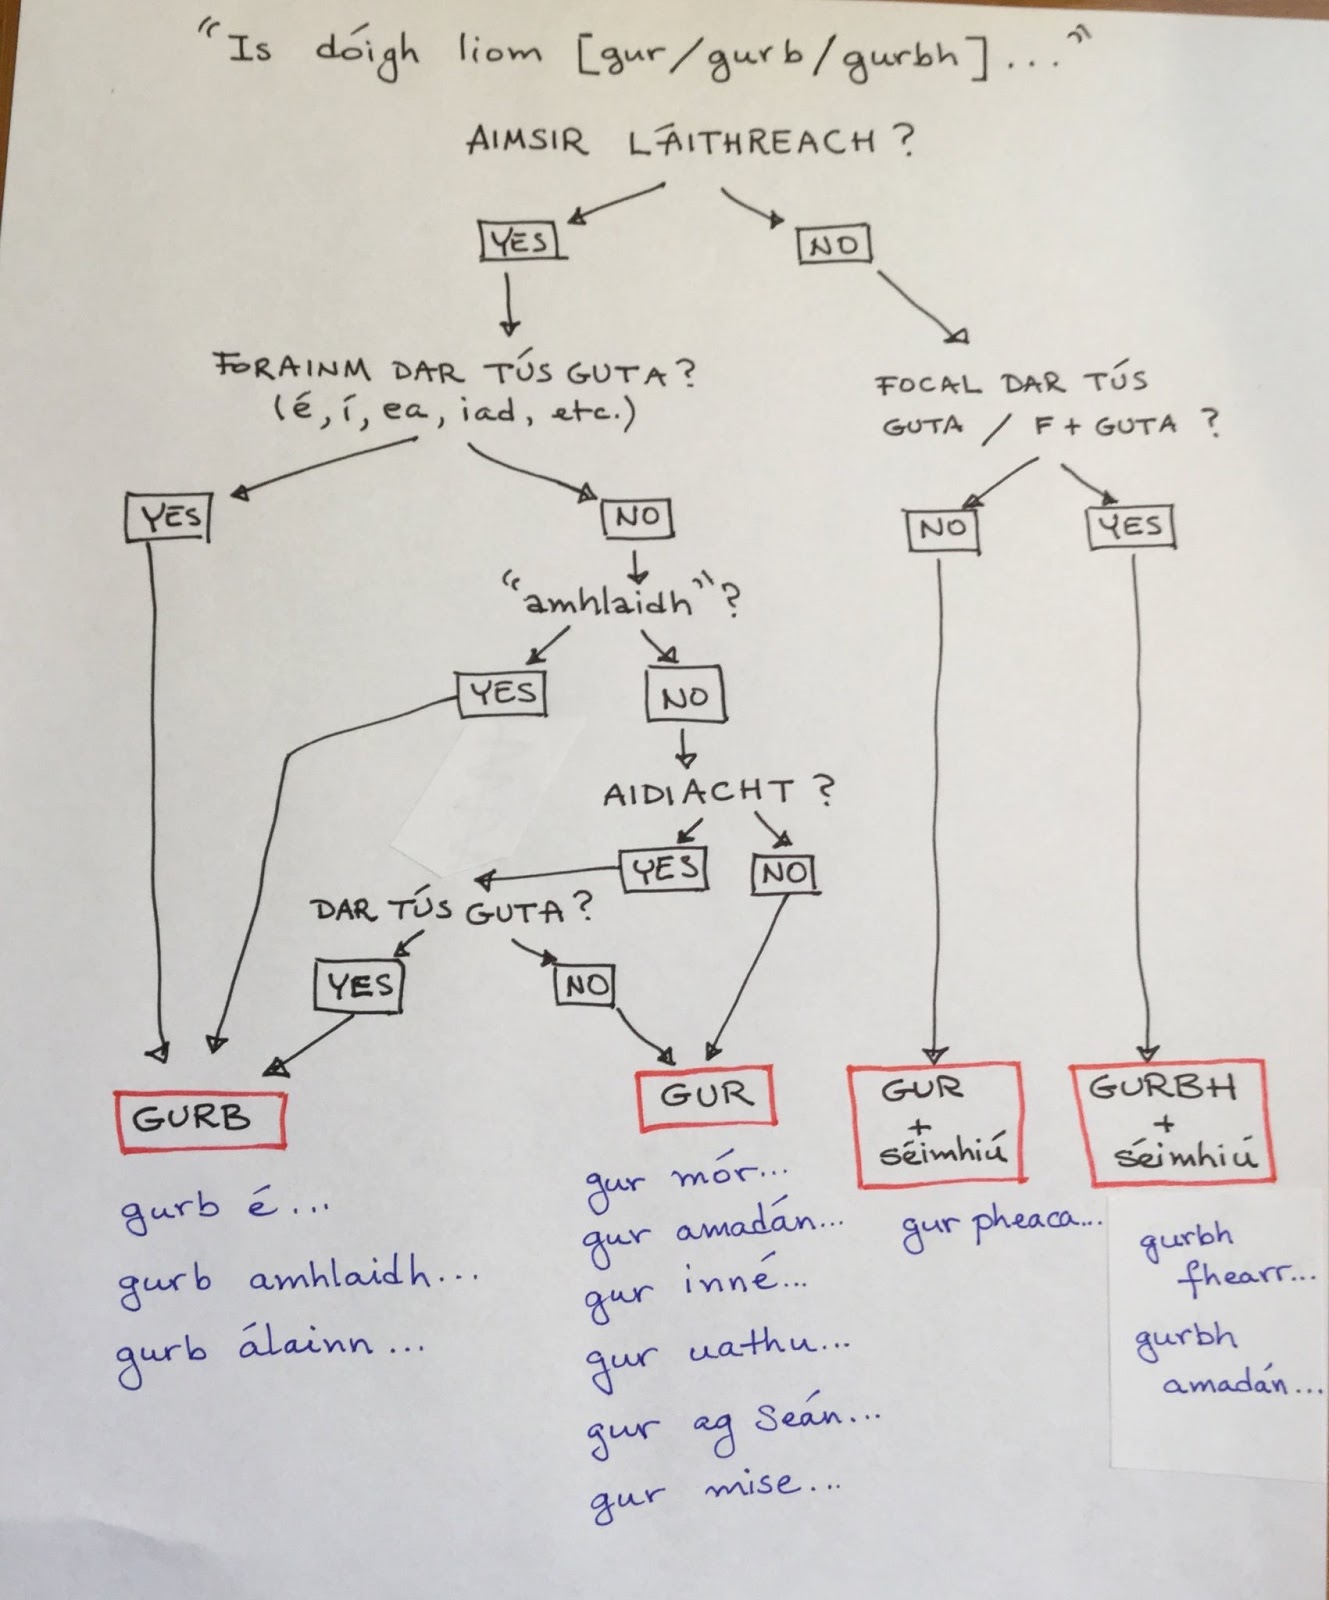 "Is dóigh liom [gur/gurb/gurbh]..."
AIMSIR LÁITHREACH?
YES
NO
FORAINM DAR TÚS GUTA?
(é, í, ea, iad, etc.)
FOCAL DAR TÚS
GUTA / F + GUTA ?
YES
NO
NO
YES
"amhlaidh"?
YES
NO
AIDIACHT ?
YES
NO
DAR TÚS GUTA?
YES
NO
GURB
gurb é...
gurb amhlaidh...
gurb álainn...
GUR
gur mór...
gur amadán...
gur inné...
gur uathu...
gur ag Seán...
gur mise...
GUR
+
séimhiú
gur pheaca...
GURBH
+
séimhiú
gurbh
fhearr...
gurbh
amadán...